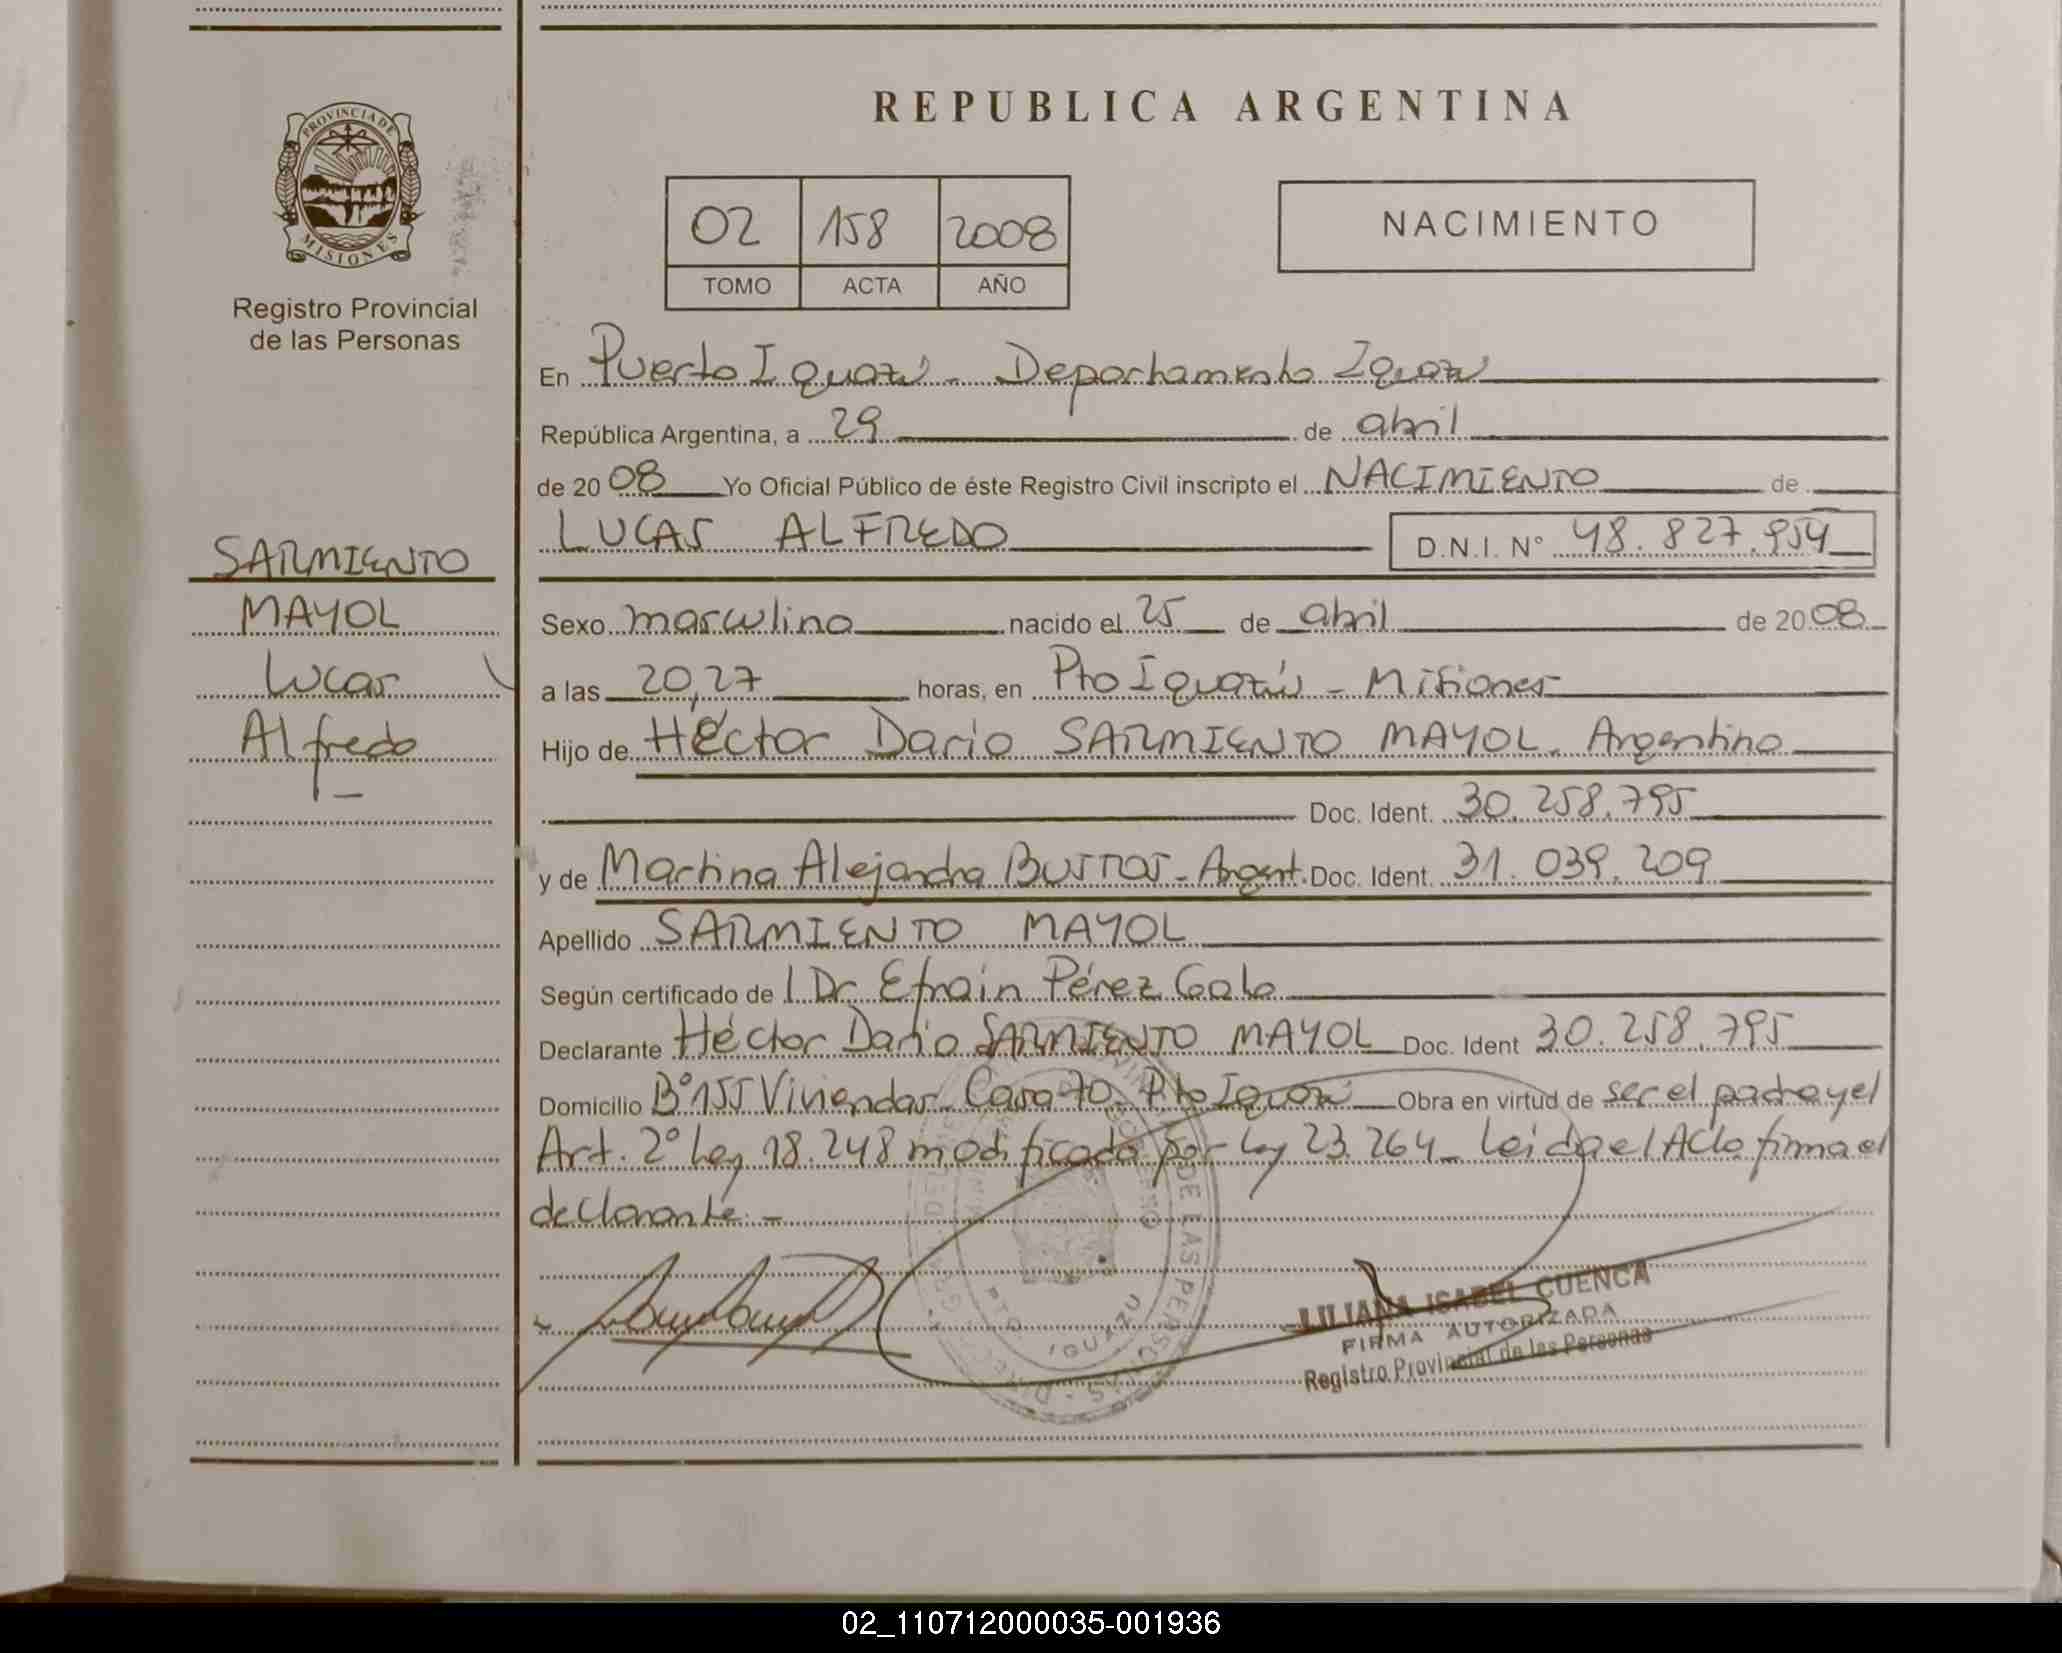 REPUBLICA ARGENTINA
PROVINCIA DE
MISIONES
Registro Provincial
de las Personas
02 158 2008
TOMO ACTA AÑO
NACIMIENTO
En Puerto Iguazú - Departamento Iguazú
República Argentina, a 29 de abril
de 2008 Yo Oficial Público de éste Registro Civil inscripto el NACIMIENTO de
LUCAS ALFREDO D.N.I. N° 48.827.954
SARMIENTO
MAYOL
Lucas
Alfredo
Sexo masculino nacido el 25 de abril de 2008
a las 20,27 horas, en Pto Iguazú - Misiones
Hijo de Héctor Dario SARMIENTO MAYOL. Argentino
Doc. Ident. 30.258.795
y de Martina Alejandra BUSTOS - Argent. Doc. Ident. 31.039.209
Apellido SARMIENTO MAYOL
Según certificado de l Dr. Efraín Pérez Galo
Declarante Héctor Dario SARMIENTO MAYOL Doc. Ident 30.258.795
Domicilio B° 155 Viviendas Casa 70 Pto Iguazú Obra en virtud de ser el padre y el
Art. 2° Ley 18.248 modificado por Ley 23.264 - Leida el Acta firma el
declarante. -
DE LAS PERSONAS
PTO IGUAZU
LILIANA ISABEL CUENCA
FIRMA AUTORIZADA
Registro Provincial de las Personas
02_110712000035-001936